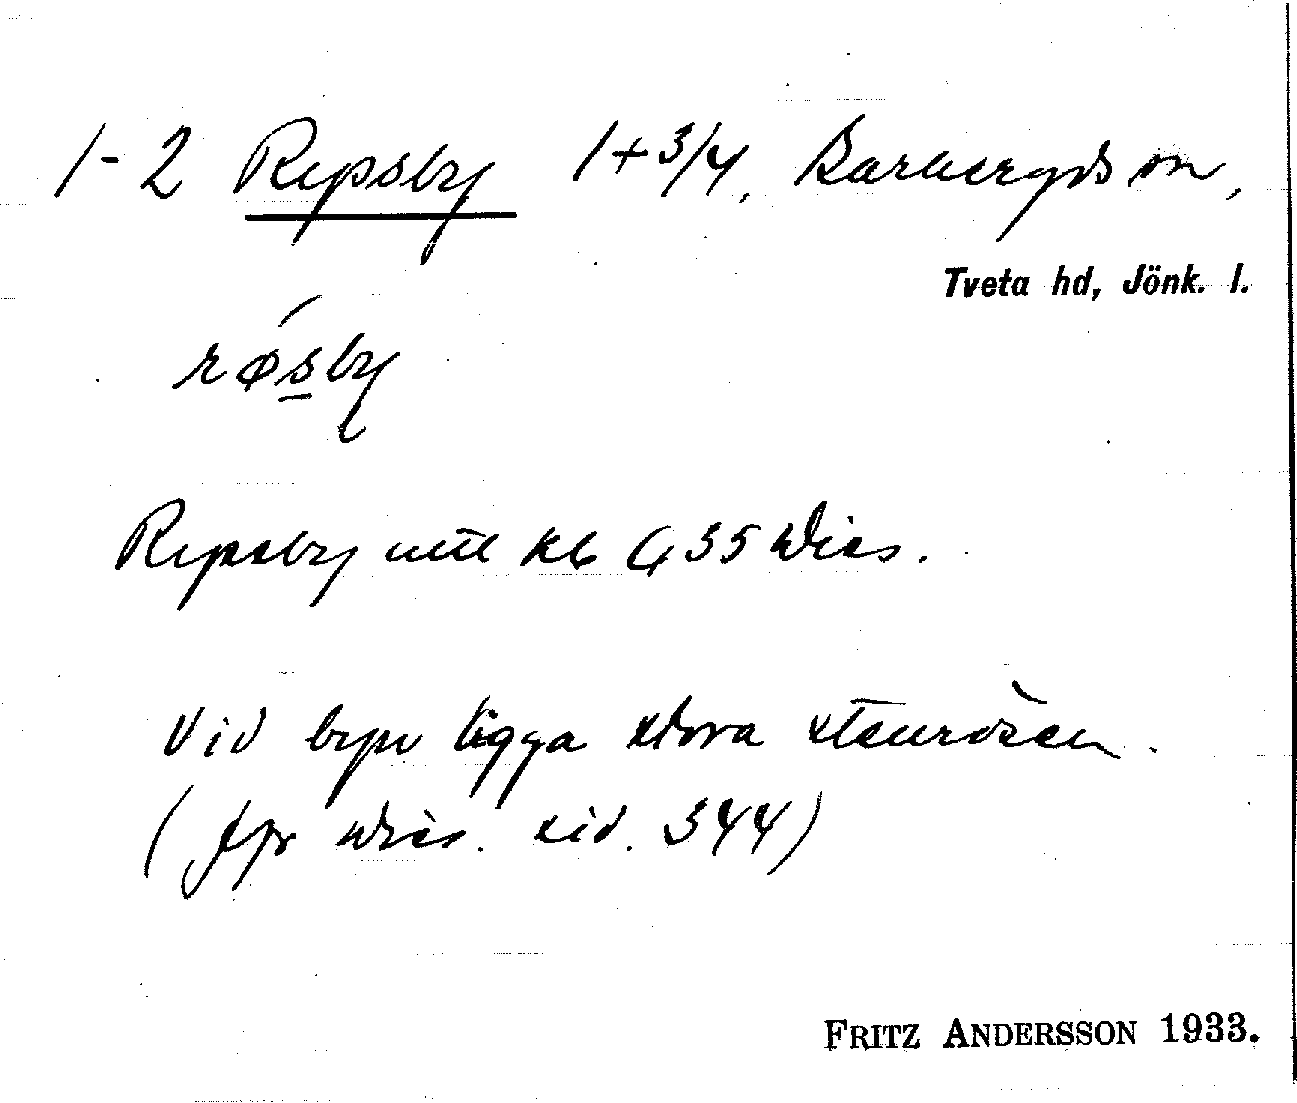 1-2 Repsby 1+3/4, Barkeryds sn,
Tveta hd, Jönk. l.
rǿsby
Repsby uttl kb G 35 Wies.
Vid byn ligga stora stenrösen.
(Jfr Wies. sid. 344)
FRITZ ANDERSSON 1933.